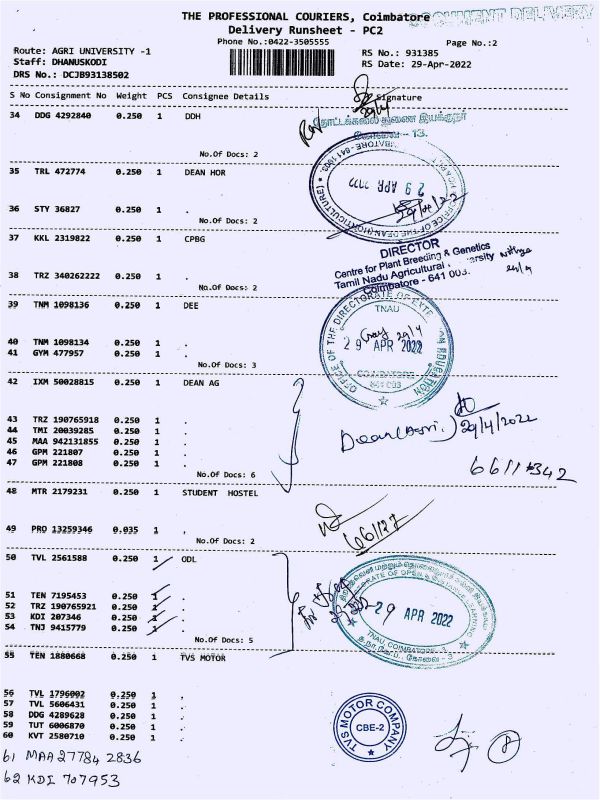 THE PROFESSIONAL COURIERS, Coimbatore
DOCUMENT DELIVERY
Delivery Runsheet - PC2
Phone No.:0422-3505555
Page No.:2
Route: AGRI UNIVERSITY -1
RS No.: 931385
Staff: DHANUSKODI
RS Date: 29-Apr-2022
DRS No.: DCJB93138502
S No Consignment No Weight PCS Consignee Details Signature
34 DDG 4292840 0.250 1 DDH
தோட்டக்கலை துணை இயக்குநர்
கோவை - 13.
No.Of Docs: 2
35 TRL 472774 0.250 1 DEAN HOR
29 APR 2022
36 STY 36827 0.250 1 .
29/4/22
No.Of Docs: 2
OFFICE OF THE DEAN (HORTICULTURE)
37 KKL 2319822 0.250 1 CPBG
DIRECTOR
Centre for Plant Breeding & Genetics
Tamil Nadu Agricultural University
Coimbatore - 641 003.
38 TRZ 340262222 0.250 1 .
No.Of Docs: 2
39 TNM 1098136 0.250 1 DEE
OFFICE OF THE DIRECTORATE OF EXTENSION EDUCATION
TNAU
29 APR 2022
COIMBATORE
641 003
40 TNM 1098134 0.250 1 .
41 GYM 477957 0.250 1 .
No.Of Docs: 3
42 IXM 50028815 0.250 1 DEAN AG
43 TRZ 190765918 0.250 1 .
44 TMI 20039285 0.250 1 .
45 MAA 942131855 0.250 1 .
46 GPM 221807 0.250 1 .
47 GPM 221808 0.250 1 .
No.Of Docs: 6
Dean(Agri.) 29/4/2022
6611342
48 MTR 2179231 0.250 1 STUDENT HOSTEL
49 PRO 13259346 0.035 1 .
No.Of Docs: 2
66127
50 TVL 2561588 0.250 1 ODL
51 TEN 7195453 0.250 1 .
52 TRZ 190765921 0.250 1 .
53 KDI 207346 0.250 1 .
54 TNJ 9415779 0.250 1 .
No.Of Docs: 5
DIRECTORATE OF OPEN & DISTANCE LEARNING
29 APR 2022
TNAU, COIMBATORE - 3
த.நா.வே.ப. கோவை - 3
55 TEN 1880668 0.250 1 TVS MOTOR
56 TVL 1796002 0.250 1 .
57 TVL 5606431 0.250 1 .
58 DDG 4289628 0.250 1 .
59 TUT 6006870 0.250 1 .
60 KVT 2580710 0.250 1 .
TVS MOTOR COMPANY
CBE-2
8
61 MAA 27784 2836
62 KDI 707953